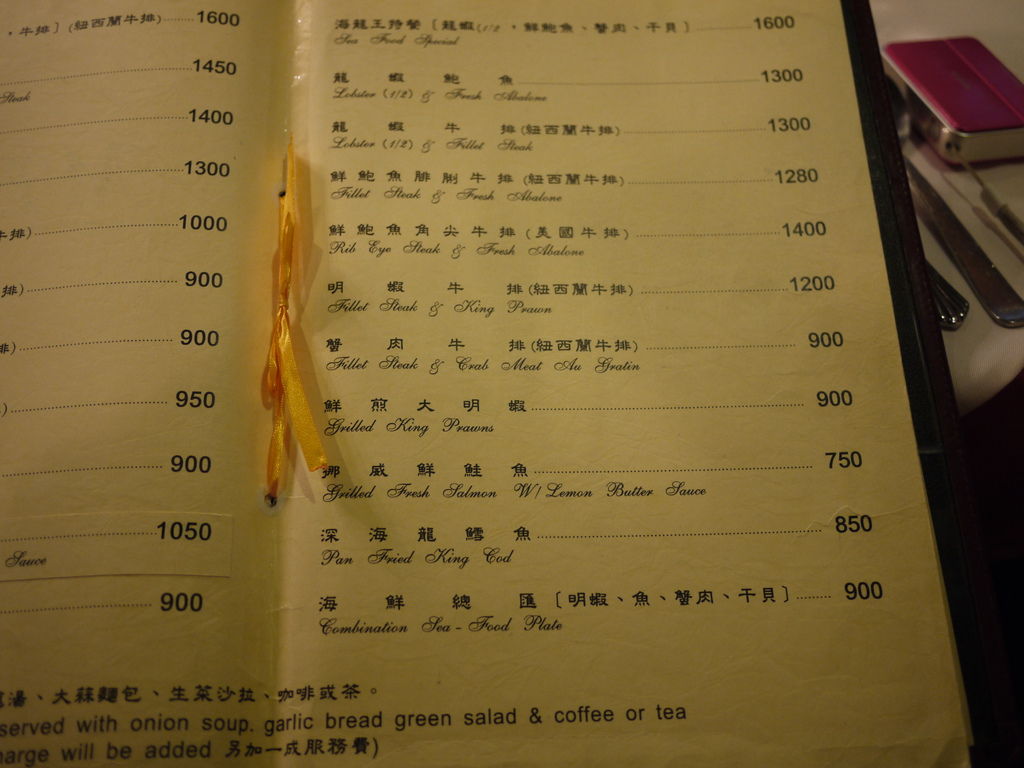 ，牛排〕(紐西蘭牛排) 1600
1450
Steak
1400
1300
牛排) 1000
排) 900
排) 900
) 950
900
1050
Sauce
900
海龍王特餐〔龍蝦(1/2，鮮鮑魚、蟹肉、干貝〕 1600
Sea Food Special
龍蝦鮑魚 1300
Lobster (1/2) & Fresh Abalone
龍蝦牛排(紐西蘭牛排) 1300
Lobster (1/2) & Fillet Steak
鮮鮑魚腓脷牛排(紐西蘭牛排) 1280
Fillet Steak & Fresh Abalone
鮮鮑魚角尖牛排(美國牛排) 1400
Rib Eye Steak & Fresh Abalone
明蝦牛排(紐西蘭牛排) 1200
Fillet Steak & King Prawn
蟹肉牛排(紐西蘭牛排) 900
Fillet Steak & Crab Meat Au Gratin
鮮煎大明蝦 900
Grilled King Prawns
挪威鮮鮭魚 750
Grilled Fresh Salmon W/Lemon Butter Sauce
深海龍鱈魚 850
Pan Fried King Cod
海鮮總匯〔明蝦、魚、蟹肉、干貝〕 900
Combination Sea-Food Plate
湯、大蒜麵包、生菜沙拉、咖啡或茶。
served with onion soup. garlic bread green salad & coffee or tea
harge will be added 另加一成服務費)